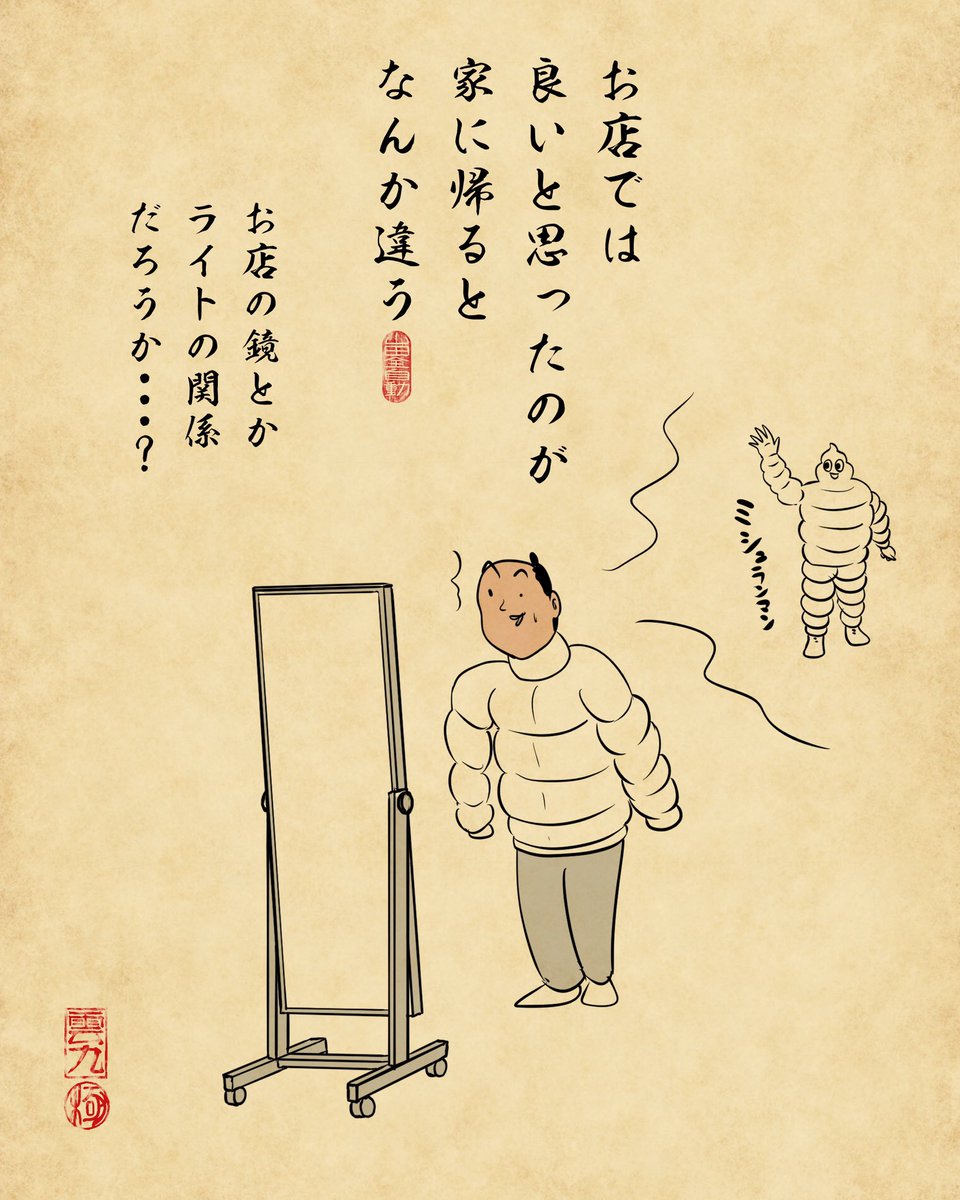 お店では
良いと思ったのが
家に帰ると
なんか違う
お店の鏡とか
ライトの関係
だろうか・・・？
ミシュランマン